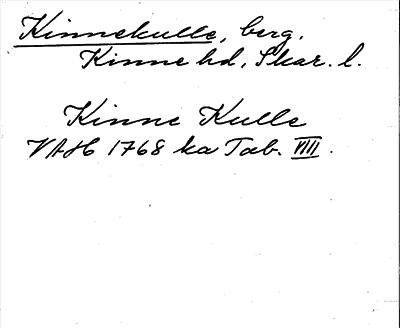 Kinnekulle, berg.
Kinne hd, Skar. l.
Kinne Kulle
VAH 1768 ka Tab. VIII.